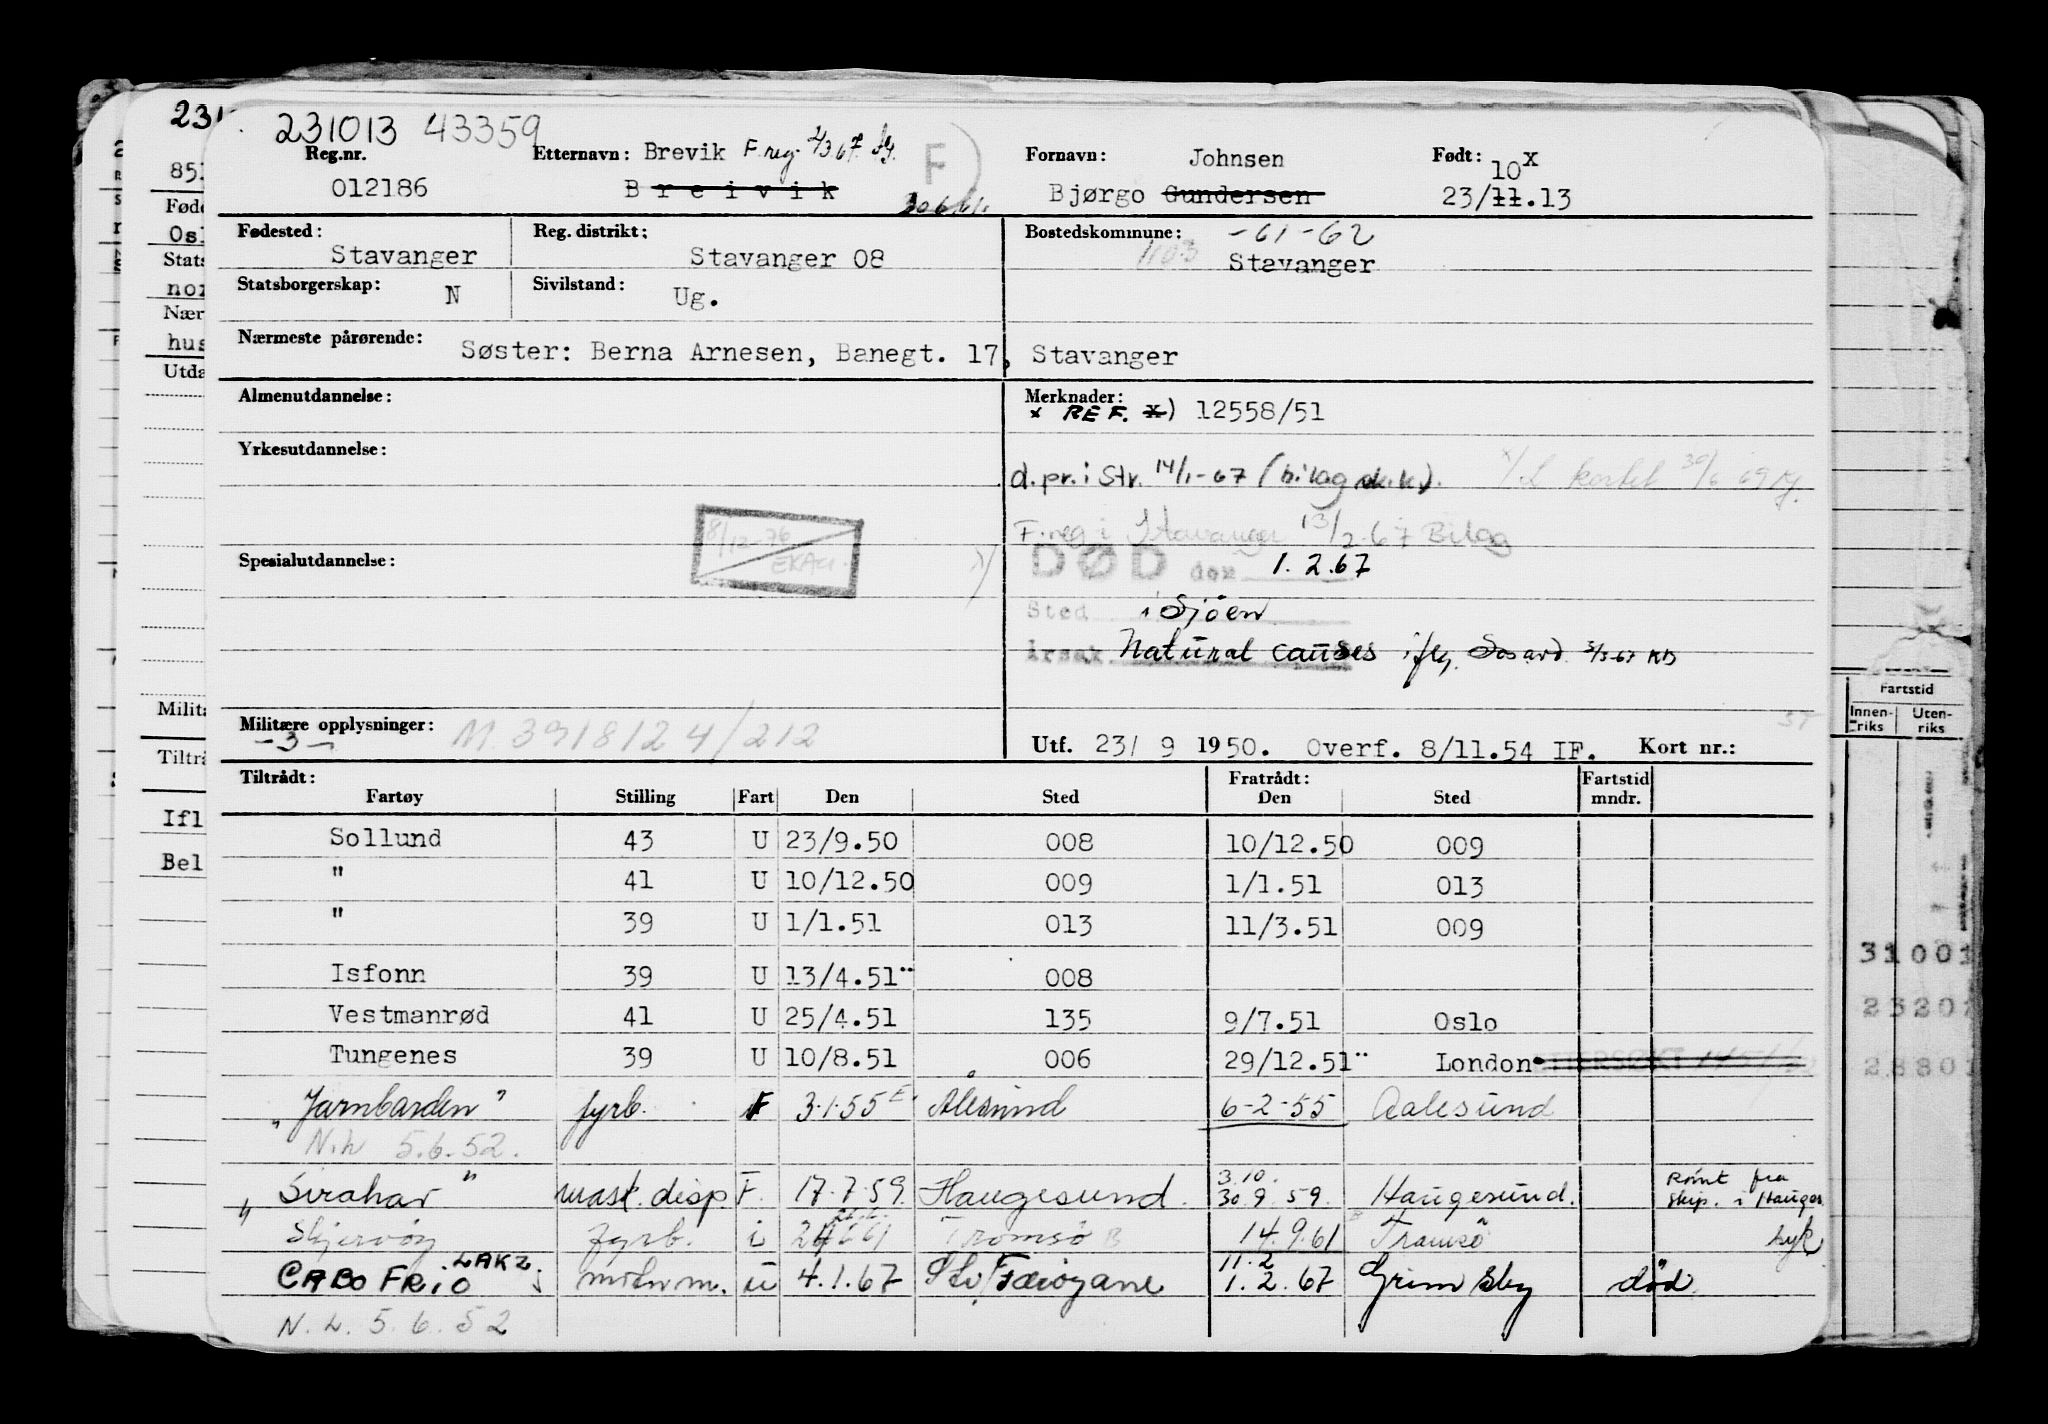 231013 43359
Reg.nr.
012186
Etternavn: Brevik F.reg. 4/3.67.
B r e i v i k
F
30.6.61.
Fornavn: Johnsen
Bjørgo Gundersen
Født: 10x
23/11.13
Fødested: Stavanger
Reg. distrikt: Stavanger 08
Bostedskommune: -61-62
1103 Stavanger
Statsborgerskap: N
Sivilstand: Ug.
Nærmeste pårørende: Søster: Berna Arnesen, Banegt. 17, Stavanger
Almenutdannelse:
Merknader:
x REF. x) 12558/51
Yrkesutdannelse:
d.pr. i Str. 14/1-67 (bilag d.k.).
kortet 30/6 69
F.reg i Stavanger 13/2-67 Bilag
8/12-76
EKAG.
Spesialutdannelse:
DØD den 1.2.67
Sted i Sjöen
Årsak Natural causes ifly. Soard 3/3-67 KD
Militære opplysninger: M 3918124/212
-3-
Utf. 23/ 9 1950. Overf. 8/11.54 IF. Kort nr.:
Tiltrådt:
Fartøy Stilling Fart Den Sted
Fratrådt:
Den Sted
Fartstid
mndr.
Sollund 43 U 23/9.50 008 10/12.50 009
" 41 U 10/12.50 009 1/1.51 013
" 39 U 1/1.51 013 11/3.51 009
Isfonn 39 U 13/4.51¨ 008
Vestmanrød 41 U 25/4.51 135 9/7.51 Oslo
Tungenes 39 U 10/8.51 006 29/12.51¨ London
"Jarnbarden" fyrb. F 3.1.55 E Ålesund 6-2-55 Aalesund
N.h 5.6.52.
"Sirahav" mask. disp. F. 17.7.59. Haugesund. 3.10.
30.9.59. Haugesund. Rømt fra
skip. i Hauges.
Skjervøy fyrb. i 24661 Tromsø B 14.9.61 Tromsö syk
CABO FRiO LAKZ motorm. ü 4.1.67 Stv/Færøyane 11.2
1.2.67 Grimsby död.
N.h. 5.6.52
231
85
Føde
Osl
Stats
nor
Nær
hus
Utda
Milita
Tiltrå
Ifl
Bel
Fartstid
Innen-
riks
Uten-
riks
31001
23201
28801